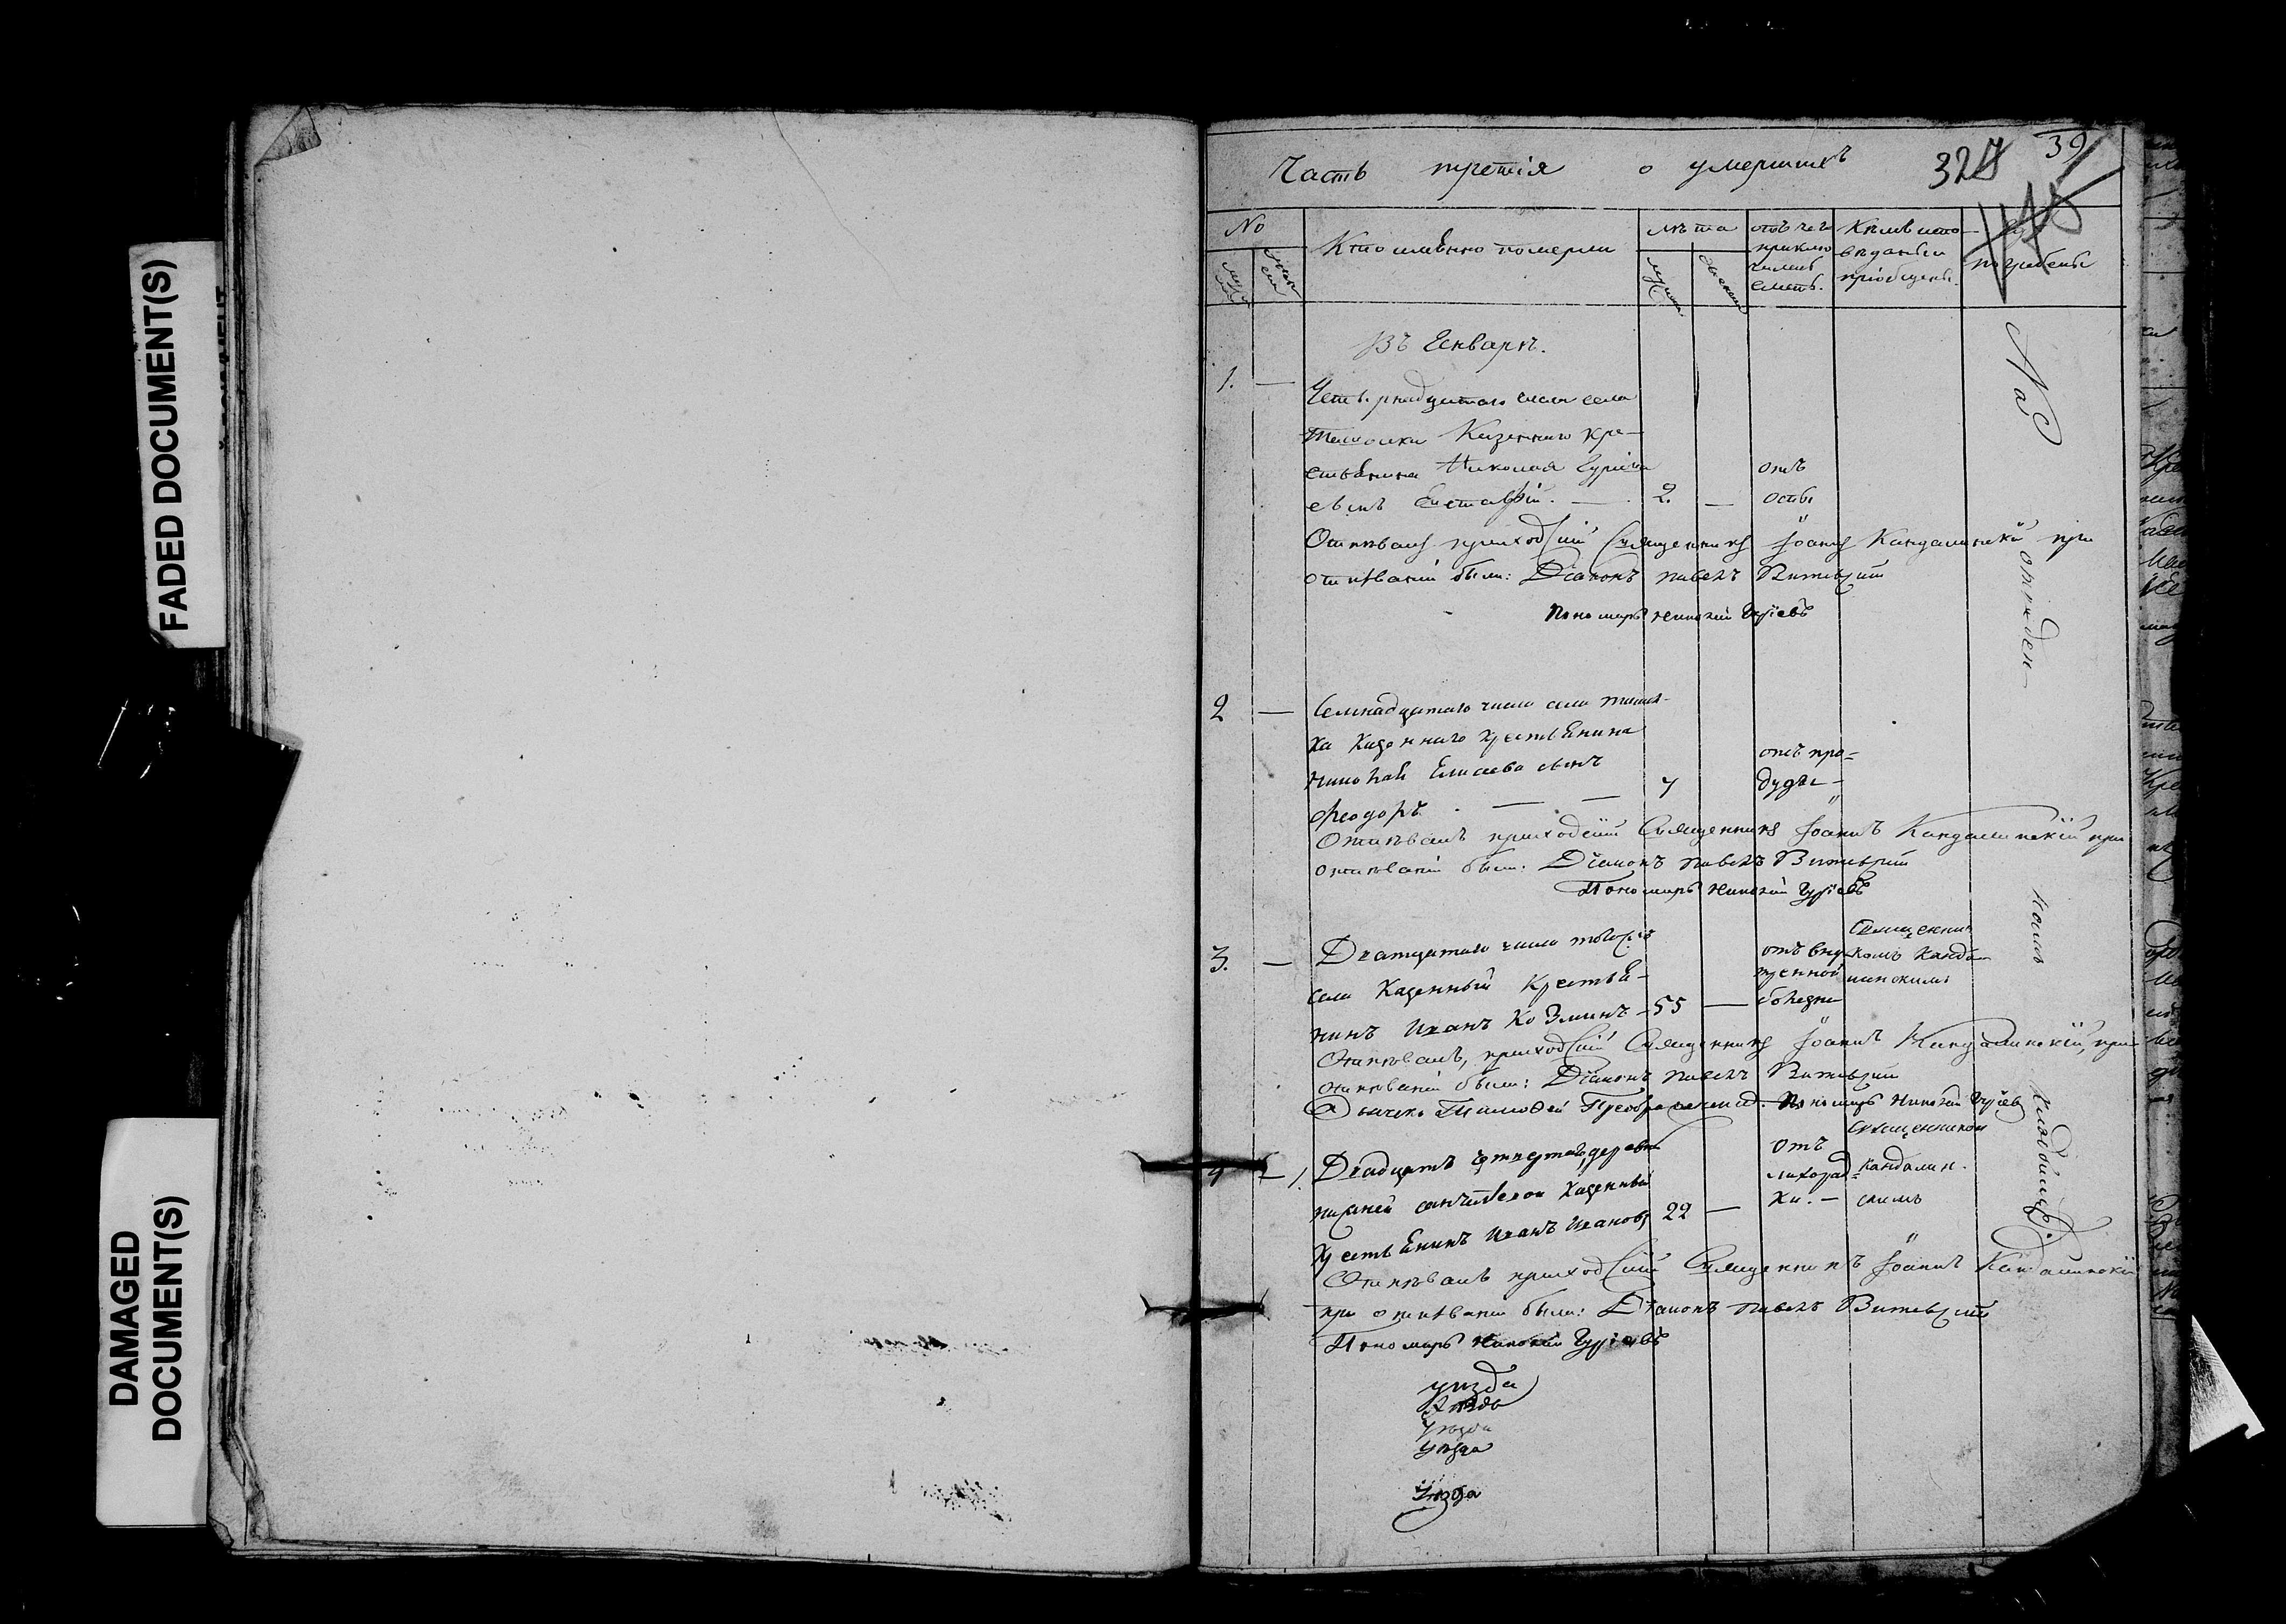 FADED DOCUMENT(S)
DAMAGED
DOCUMENT(S)
Часть третія о умершихъ
39
No
Кто имѣнно померли
лѣта
отъ чего
приклю
чилась
сметь.
Кѣмъ испо-
вѣданы и
пріобщены.
погребены
Въ Генварѣ.
1. —
Четырнадцатаго числа села
Казеннаго кре-
стьянина Николая Гуріева
сынъ Евстафій. — 2. —
отъ
оспы
Отпѣвалъ приходскій Священникъ Іоаннъ Кандалинскій при
отпѣваніи были: Діаконъ павелъ
Пономарь Николай Гуріевъ
2 —
Семнадцатаго числа села
ка Казеннаго крестьянина
Николая Елисеева сынъ
феодоръ. — — 7
отъ про-
студы —
Отпѣвалъ приходскій Священникъ Іоаннъ Кандалинскій при
отпѣваніи были: Діаконъ павелъ
Пономарь Николай Гуріевъ
3. —
Дватцатаго числа тогожъ
села Казенный Крестья-
нинъ Иванъ Козминъ — 55 —
отъ вну
тренной
болезни
Священни
комъКанда
линскимъ
Отпѣвалъ, приходскій Священникъ Іоаннъ Кандалинскій, при
отпѣваніи были: Діаконъ павелъ
Дьячекъ Пономарь Николай Гуріевъ
4 —
Двадцать четвертаго, деревни
нижней Казенный
Крестьянинъ Иванъ Ивановъ 22 —
отъ
лихорад-
ки. —
Священником
Кандалин-
скимъ
Отпѣвалъ приходскій Священникъ Іоаннъ Кандалинскій
при отпѣваніи были: Діаконъ павелъ
Пономарь Николай Гуріевъ
уѣзда
уѣзда
уѣзда
уѣзда
уѣзда
На отведенномъ кладбищѣ.